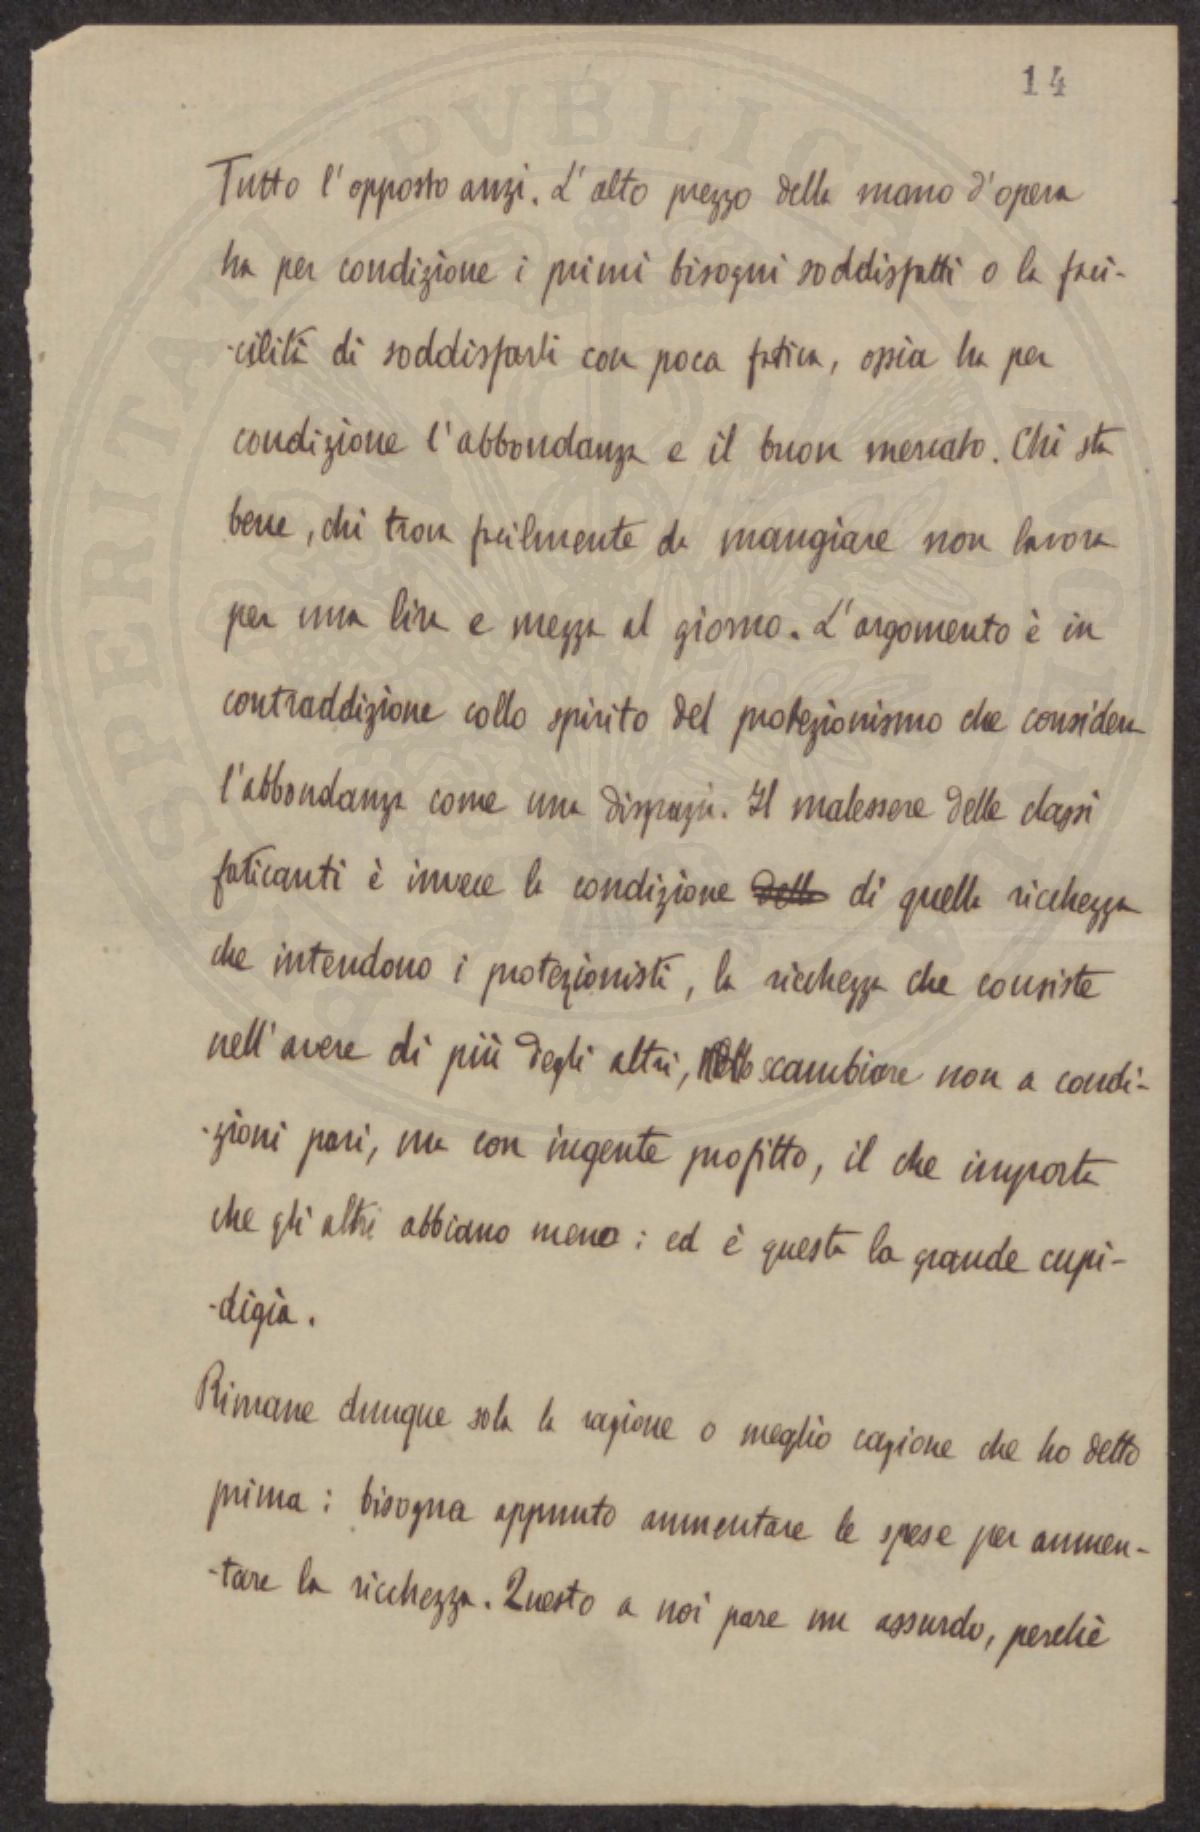 14
Tutto l'opposto anzi. L'alto prezzo della mano d'opera
ha per condizione i primi bisogni soddisfatti o la faci-
-cilità di soddisfarli con poca fatica, ossia ha per
condizione l'abbondanza e il buon mercato. Chi sta
bene, chi trova facilmente da mangiare non lavora
per una lira e mezza al giorno. L'argomento è in
contraddizione collo spirito del protezionismo che considera
l'abbondanza come una disgrazia. Il malessere delle classi
faticanti è invece la condizione della di quella ricchezza
che intendono i protezionisti, la ricchezza che consiste
nell'avere di più degli altri, nello scambiare non a condi-
-zioni pari, ma con ingente profitto, il che importa
che gli altri abbiano meno: ed è questa la grande cupi-
-digia.
Rimane dunque sola la ragione o meglio cagione che ho detto
prima: bisogna appunto aumentare le spese per aumen-
-tare la ricchezza. Questo a noi pare un assurdo, perchè
PVBLICAE
SPERITATI